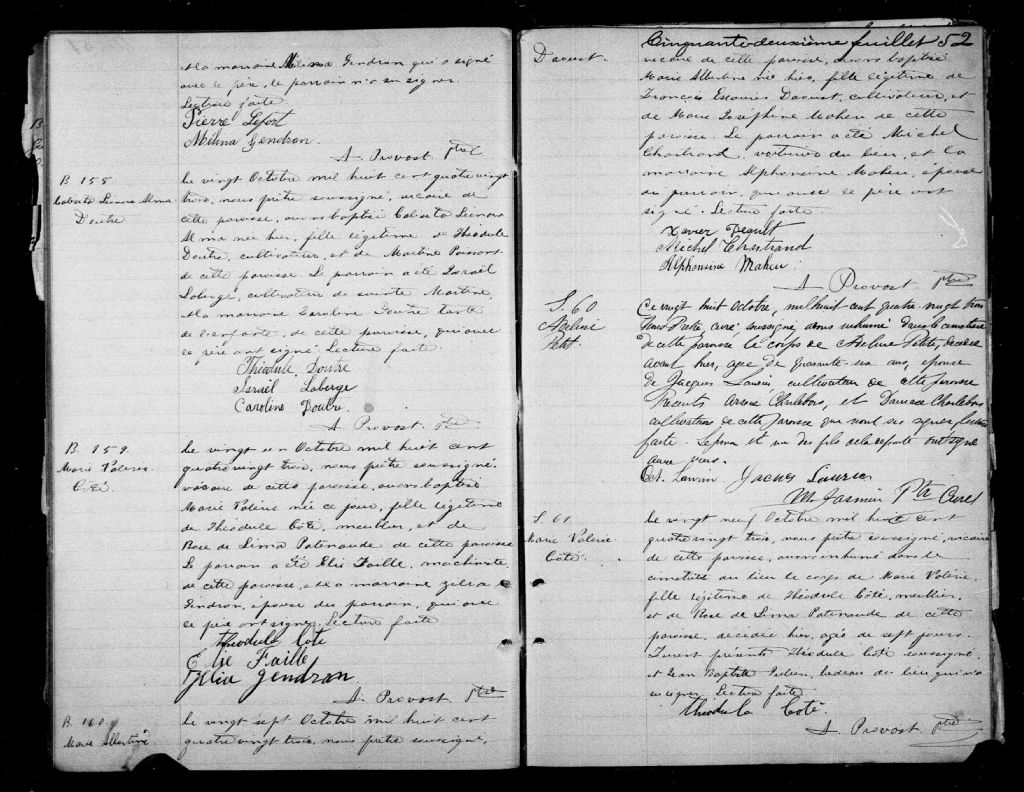 et la marraine Melina Gendron qui a signé
avec le père, le parrain n'a su signer.
Lecture faite.
Pierre Lefort
Melina Gendron.
A. Provost ptre
B 158.
Doutre
Le vingt Octobre mil huit cent quatre vingt
trois, nous prêtre soussigné, vicaire de
cette paroisse, avons baptisé Caliesta Leonora
Alma née hier, fille légitime de Théodule
Doutre, cultivateur, et de Martine Poissant
de cette paroisse. Le parrain a été Israël
Laberge, cultivateur de sainte Martine,
et la marraine Caroline Doutre tante
de l'enfant, de cette paroisse, qui avec
le père ont signé. Lecture faite.
Théodule Doutre
Israël Laberge
Caroline Doutre.
A. Provost ptre
B. 159.
Marie Valerie
Côté.
Le vingt un Octobre mil huit cent
quatre vingt trois, nous prêtre soussigné,
vicaire de cette paroisse, avons baptisé
Marie Valérie née ce jour, fille légitime
de Théodule Côté, meublier, et de
Rose de Lima Patenaude de cette paroisse
Le parrain a été Elie Faille, machiniste,
de cette paroisse, et la marraine Zelia
Gendron, épouse du parrain, qui avec
le père ont signé. Lecture faite
Théodule Coté
Elie Faille
Zelia Gendron
A. Provost ptre
B. 160.
Marie Albertine
Le vingt sept Octobre mil huit cent
quatre vingt trois, nous prêtre soussigné,
Cinquante deuxième feuillet 52
Daoust.
vicaire de cette paroisse, avons baptisé
Marie Albertine née hier, fille légitime de
François Daoust, cultivateur, et
de Marie Josephine Maheu de cette
paroisse. Le parrain a été Michel
Chartrand, du lieu, et la
marraine Alphonsine Maheu, épouse
du parrain, qui avec le père ont
signé. Lecture faite.
Xavier
Michel Chartrand
Alphonsine Maheu.
A. Provost Ptre
S. 60
Adeline
Petit.
Ce vingt huit octobre, mil huit cent quatre vingt trois
Nous Prêtre curé soussigné, avons inhumé dans le cimetière
de cette paroisse le corps de Adeline Petit, décédée
avant hier, age de quarante-six ans, épouse
de Jacques Laurin cultivateur de cette paroisse
Présents Arsene Charlebois, et Damase Charlebois
cultivateurs de cette paroisse que n'ont su signer, lecture
faite. L'époux et un des fils de la défunte ont signé
avec nous.
Oct. Laurin Jacques Laurin
M. Jasmin Ptr Curé
S. 61.
Marie Valerie
Côté.
Le vingt neuf Octobre mil huit cent
quatre vingt trois, nous prêtre soussigné, vicaire
de cette paroisse, avons inhumé dans le
cimetière du lieu le corps de Marie Valérie,
fille légitime de Théodule Côté, meublier,
et de Rose de Lima Patenaude de cette
paroisse, décédée hier, agée de sept jours.
Furent présents Théodule Côté soussigné,
et Jean Baptiste Julien, bedeau du lieu qui n'a
su signer. Lecture faite
Théodule Coté
A. Provost ptre